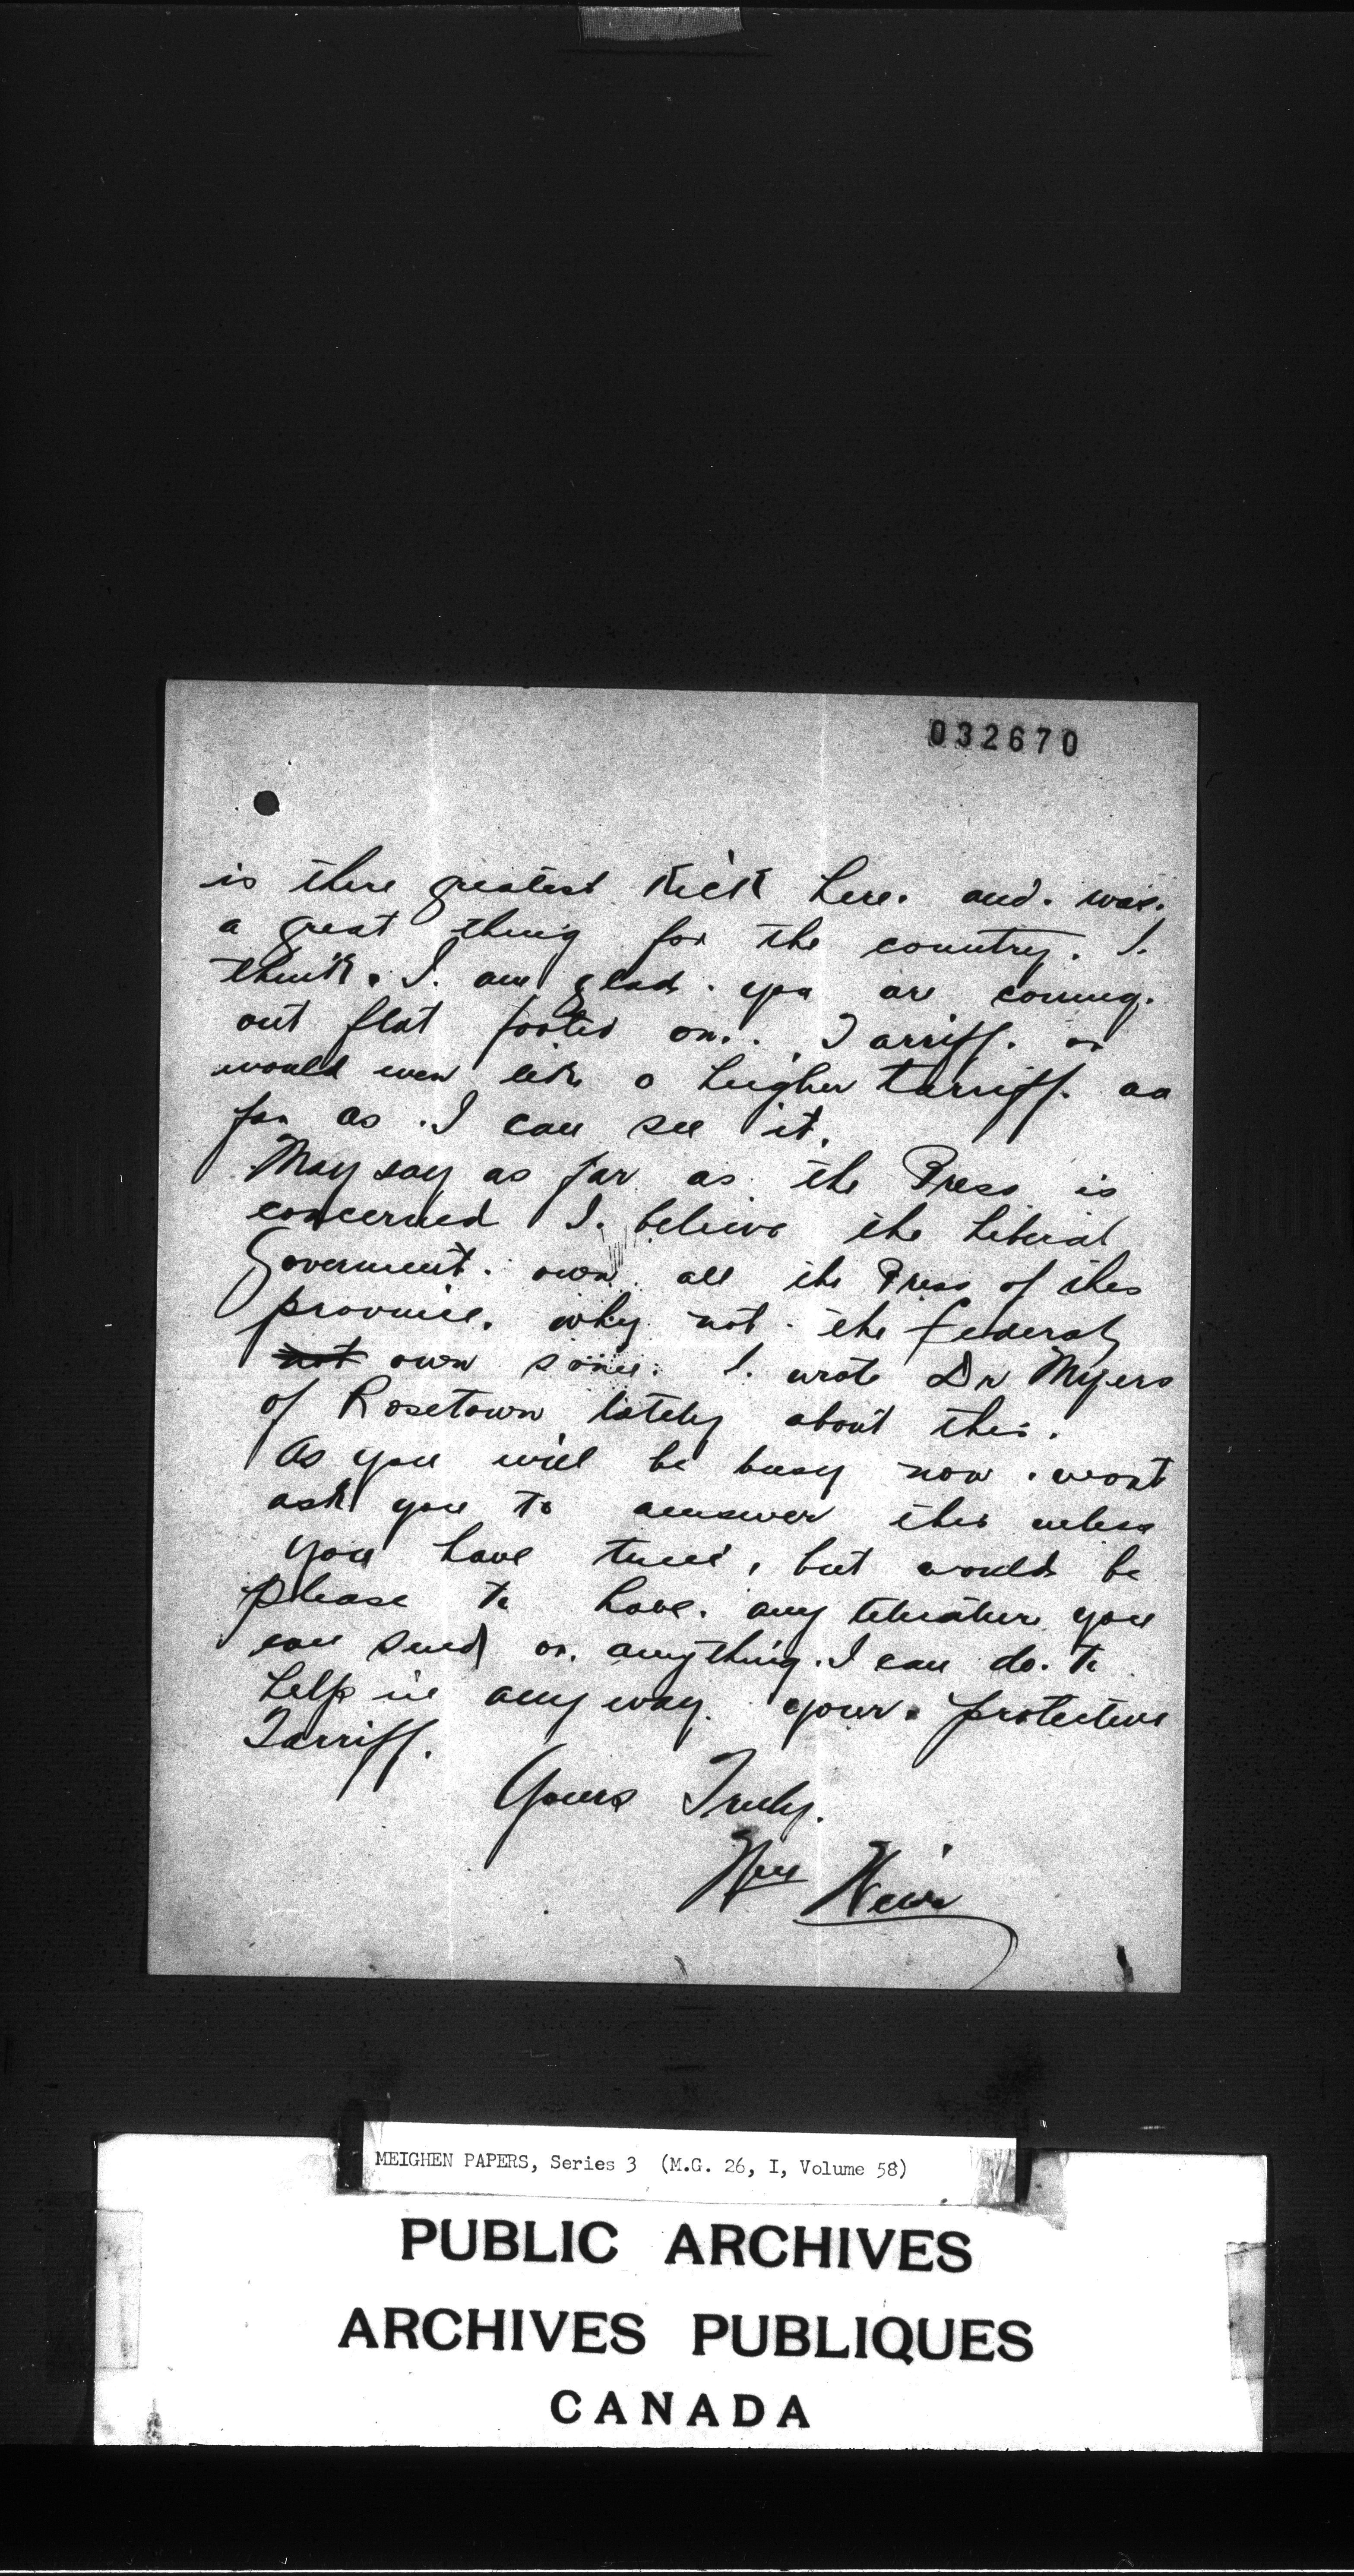 032670
is there greatest Kick here. and. was.
a great thing for the country. I.
think. I. am glad. you ar coming.
out flat footed on.. Tarriff. or
would even like a higher tarriff. as
far as I can see it.
May say as far as the Press is
concerned I. believe the Liberal
Goverment. own all the Press of this
province. why not the federal
not own some. I. wrote Dr Myers
of Rosetown lately about this.
As you will be busy now. wont
ask you to answer this unless
you have time, but would be
please to have. any literature you
can send or. anything. I can do. to
help in any way. your. protective
Tarriff.
Yours Truly.
Wm Weir
MEIGHEN PAPERS, Series 3 (M.G. 26, I, Volume 58)
PUBLIC ARCHIVES
ARCHIVES PUBLIQUES
CANADA